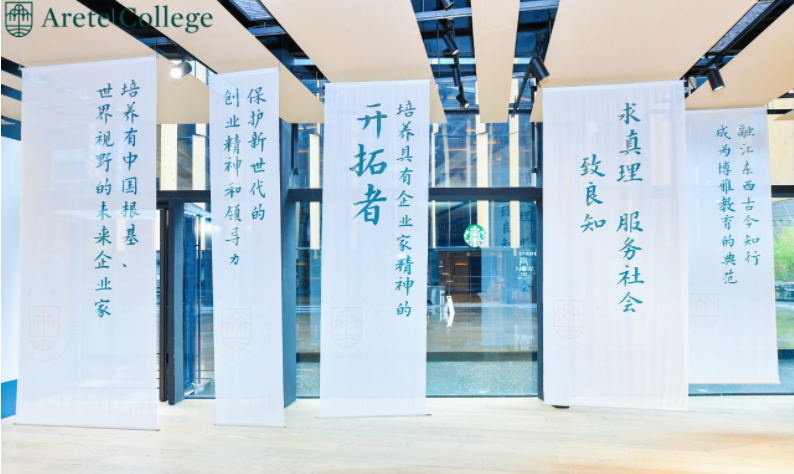 Arete College
培养有中国根基、
世界视野的未来企业家
保护新世代的
创业精神和领导力
培养具有企业家精神的
开拓者
求真理 服务社会
致良知
融汇东西古今知行
成为博雅教育的典范